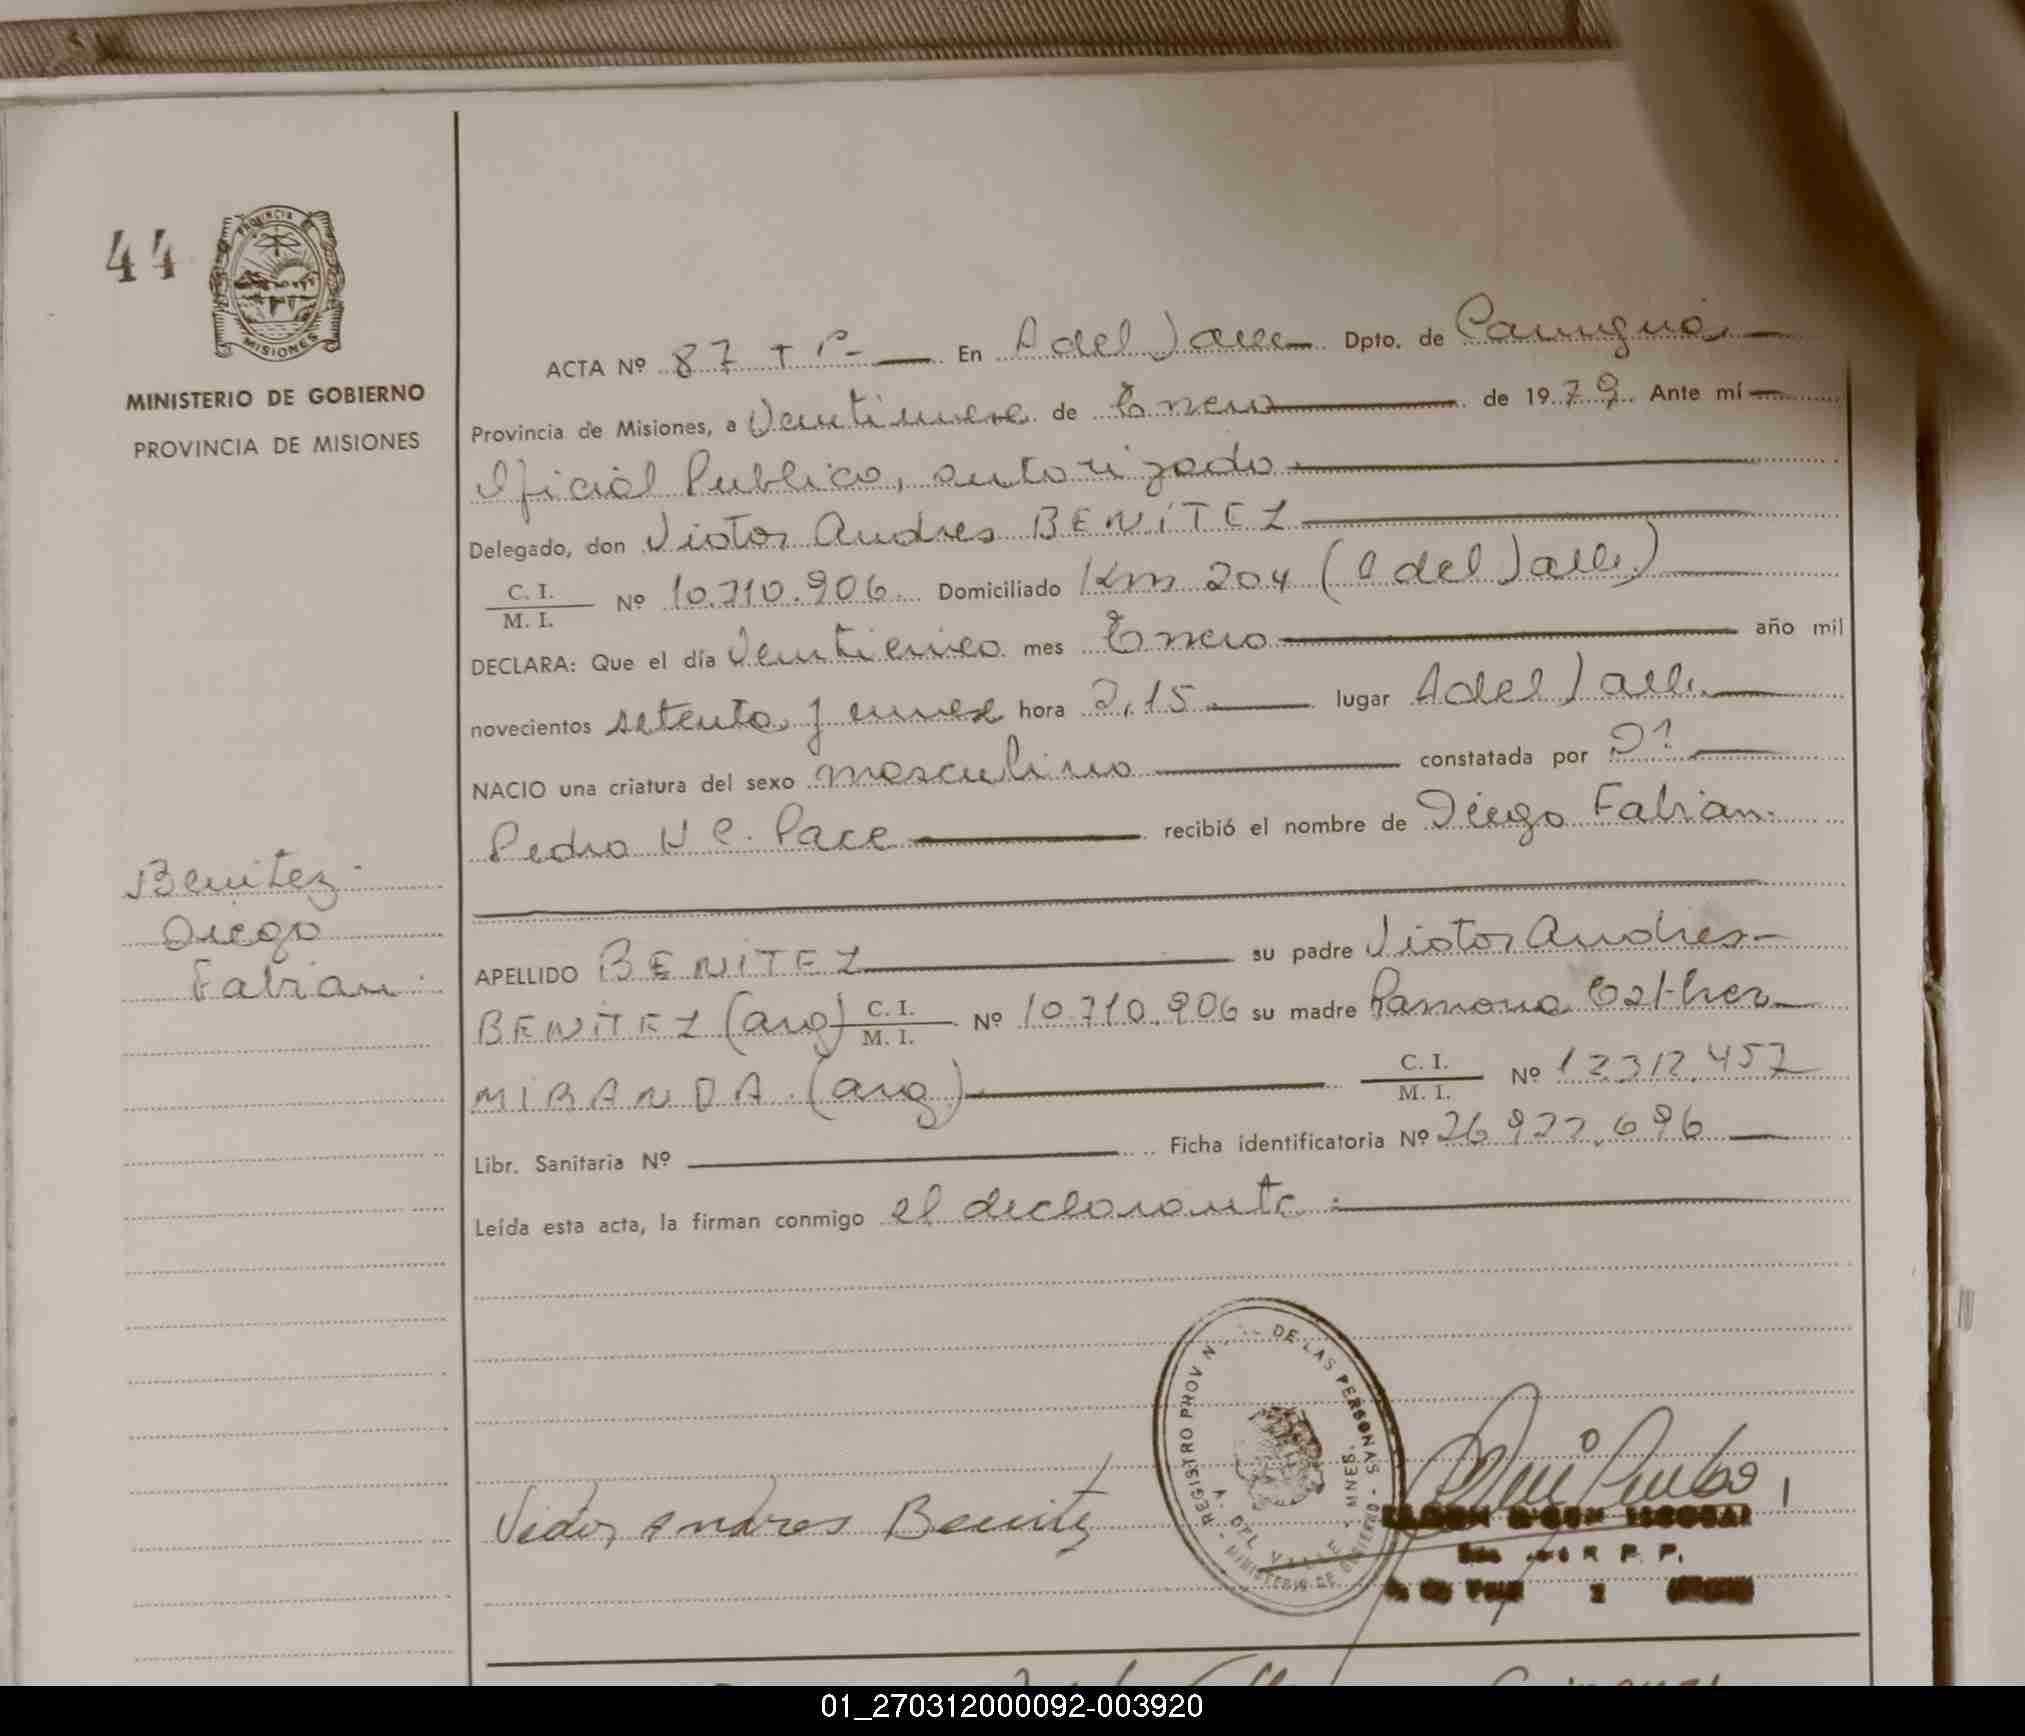 44
PROVINCIA
MISIONES
MINISTERIO DE GOBIERNO
PROVINCIA DE MISIONES
ACTA Nº 87 En A del Valle Dpto. de Cainguas
Provincia de Misiones, a Ventinueve de Enero de 1979 Ante mí
Oficial Publico, autorizado
Delegado, don Victor Andres BENITEZ
C. I.
M. I. Nº 10.710.906. Domiciliado Km 204 (A del Valle)
DECLARA: Que el día Venticinco mes Enero año mil
novecientos setenta y nueve hora 2,15 lugar A del Valle
NACIO una criatura del sexo masculino constatada por
Pedro H C. Pace recibió el nombre de Diego Fabian
Benitez
Diego
Fabian
APELLIDO BENITEZ su padre Victor Andres
BENITEZ (arg) C. I.
M. I. Nº 10.710.906 su madre Ramona Esther
MIRANDA (arg) C. I.
M. I. Nº 12.312.457
Libr. Sanitaria Nº Ficha identificatoria Nº 26 927.696
Leída esta acta, la firman conmigo el declarante
REGISTRO PROV DE LAS PERSONAS
MINISTERIO DE GOBIERNO
A. DEL VALLE MNES.
Victor andres Benitez
ESCOBAR
R P. P.
01_270312000092-003920